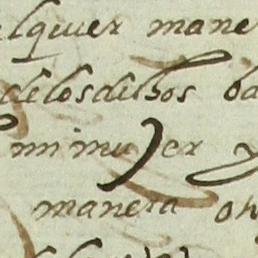 lquier mane
delosdichos ba
mi mujer y
manera o